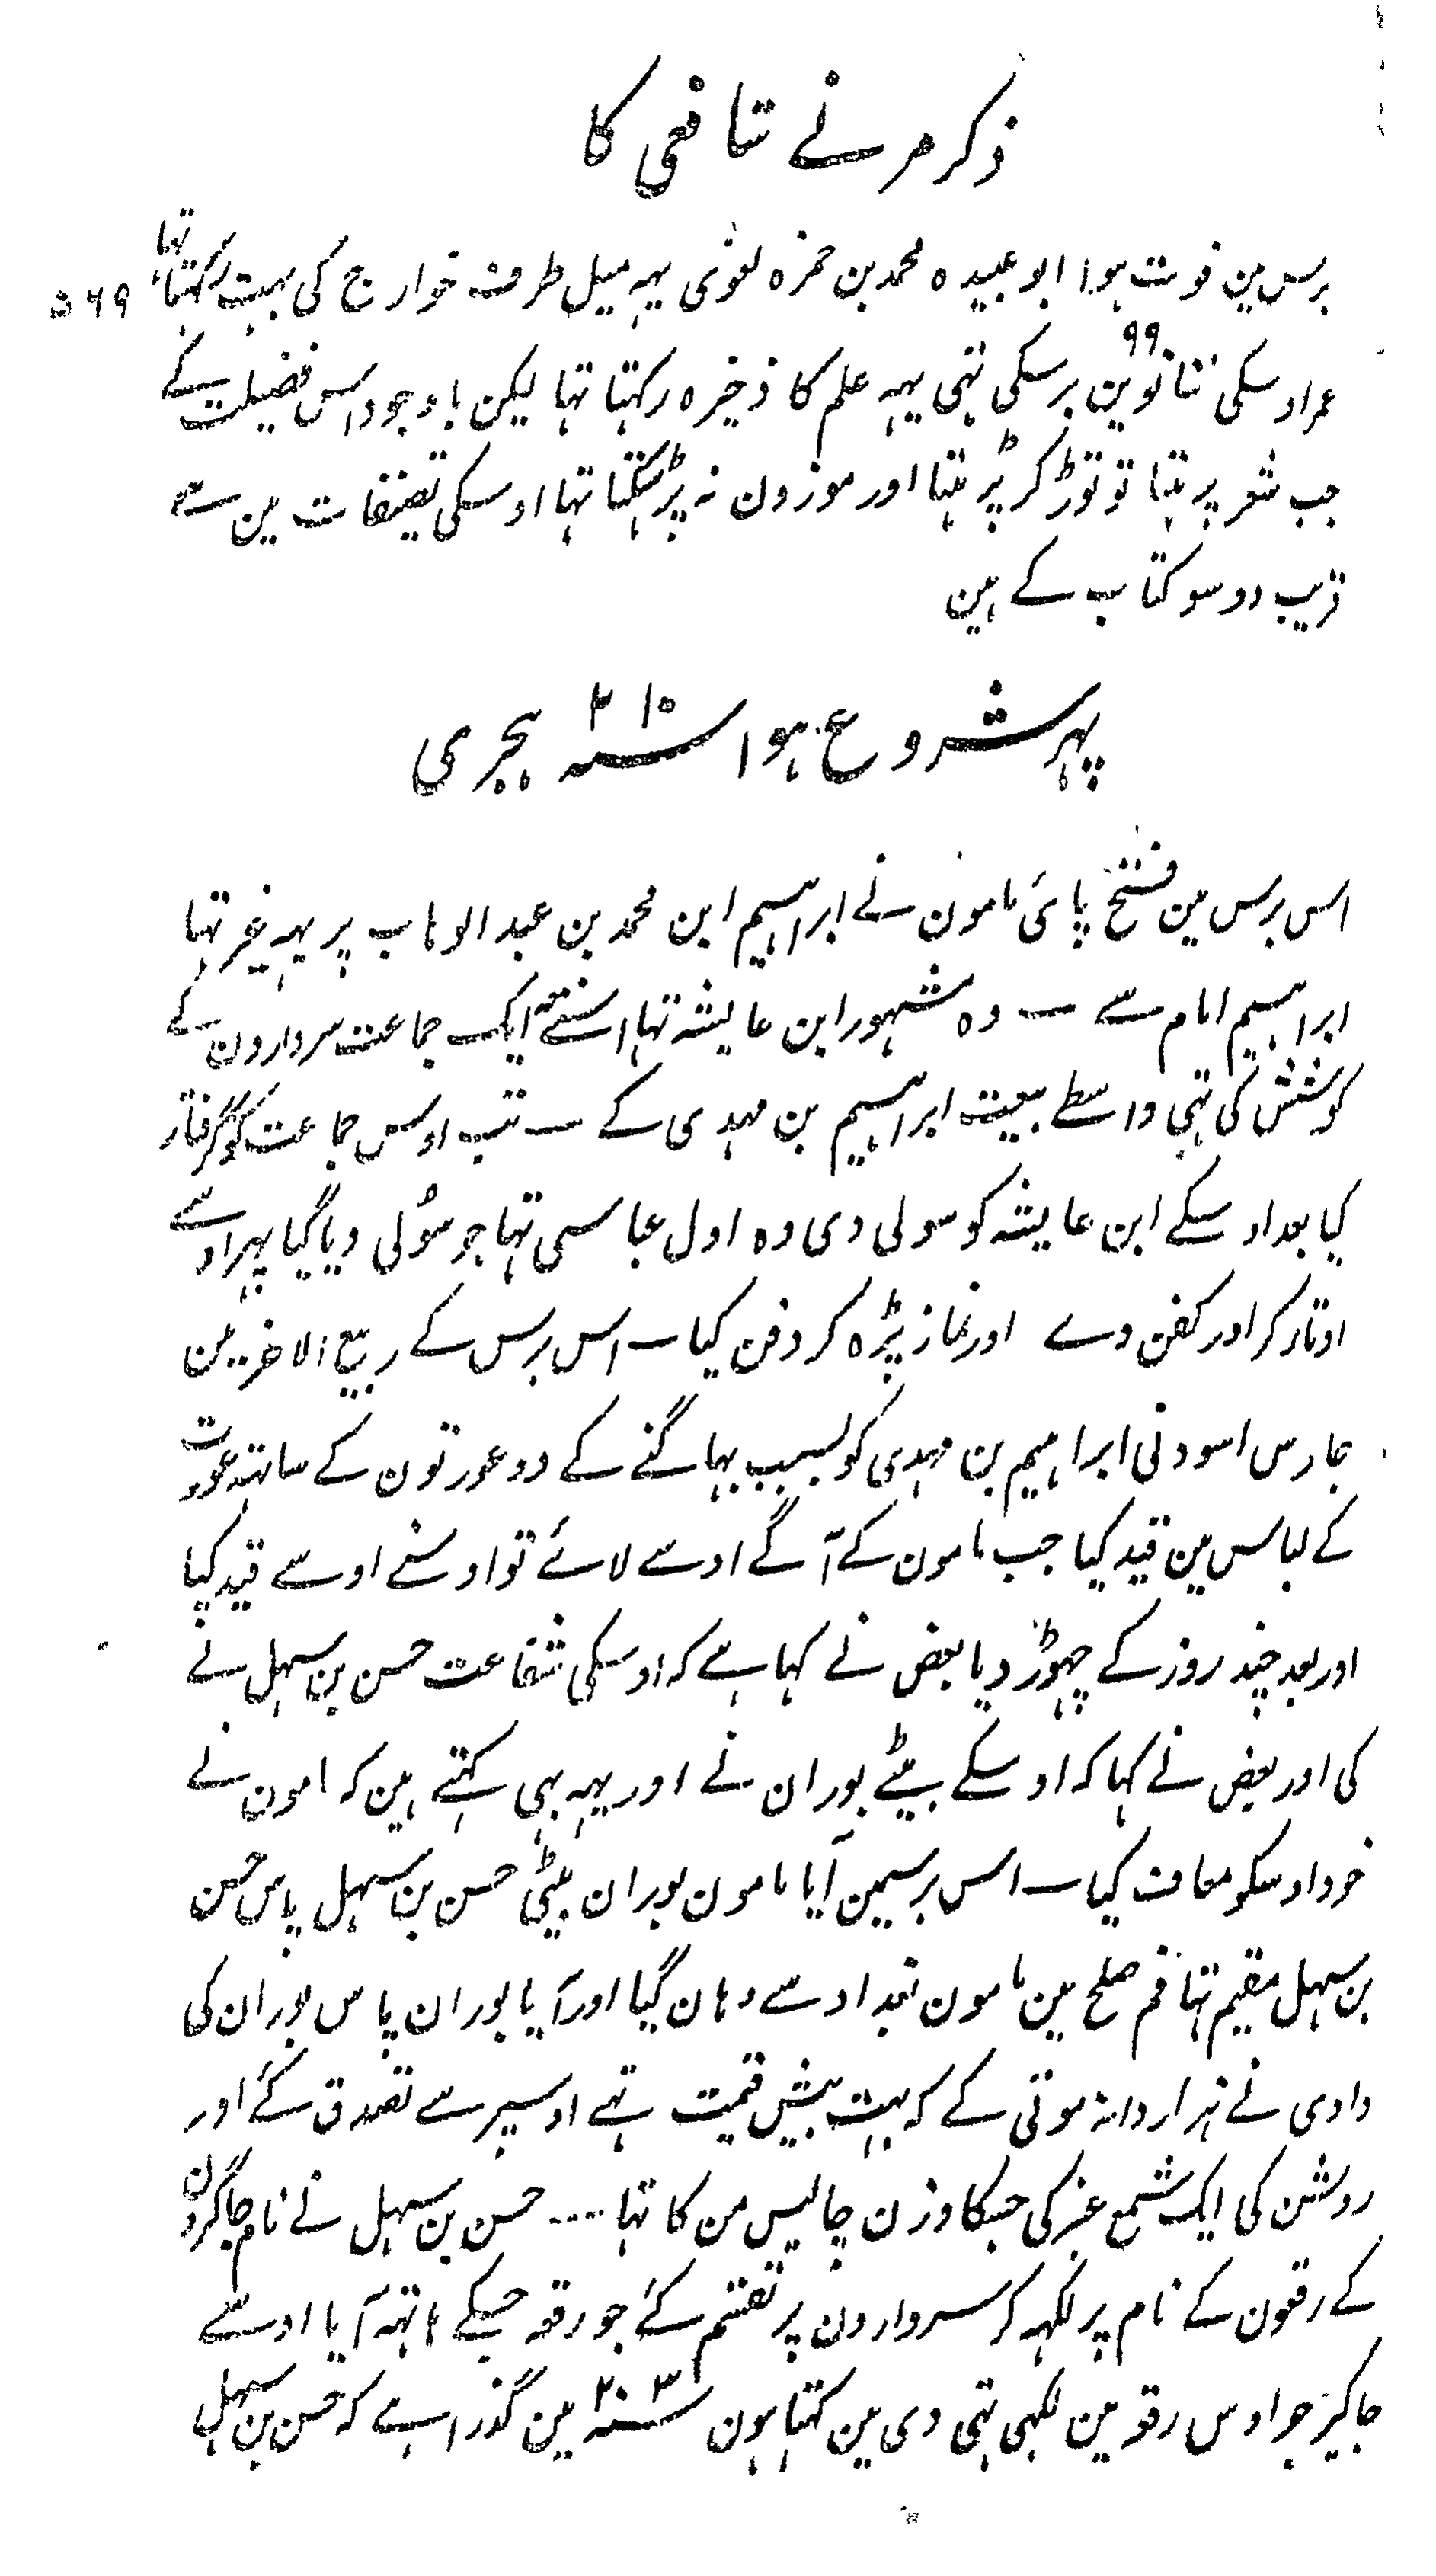 ذکر مرنے شافعی کا
برس مین فوت ہوا ابو عبیدہ محمد بن حمزہ لغوی یہہ میل طرف خوارج کی بہت رکہتا تہا ۵۶۹
عمر اوسکی ننانوین ۹۹ برسکی تہی یہہ علم کا ذخیرہ رکہتا تہا لیکن باوجود اس فضیلت کے
جب شعر پڑہتا تو توڑ کر پڑہتا اور موزون نہ پڑہ سکتا تہا اوسکی تصنیفات مین سے
قریب دوسو کتاب کے ہین
پہر شروع ہوا سنہ ۲۱۰ ہجری
اس برس مین فتح پائی مامون نے ابراہیم ابن محمد بن عبد الوہاب پر یہہ غیر تہا
ابراہیم امام سے ۔ وہ مشہور ابن عایشہ تہا اسنے ایک جماعت سردارون کے
کوشش کی تہی واسطے بیعت ابراہیم بن مہدی کے ۔ تب اوس جماعت کو گرفتار
کیا بعد اوسکے ابن عایشہ کو سولی دی وہ اول عباسی تہا جو سُولی دیا گیا پہر اوسے
اوتار کر اور کفن دے اور نماز پڑہ کر دفن کیا ۔ اس برس کے ربیع الاخر مین
حارس اسود نی ابراہیم بن مہدی کو بسبب بہاگنے کے دو عورتون کے ساتہہ عورت
کے لباس مین قید کیا جب مامون کے آگے اوسے لائے تو اوسنے اوسے قید کیا
اور بعد چند روز کے چہوڑ دیا بعض نے کہا ہے کہ اوسکی شفاعت حسن بن سہل نے
کی اور بعض نے کہا کہ اوسکے بیٹے بوران نے اور یہہ بہی کہتے ہین کہ مامون نے
خود اوسکو معاف کیا ۔ اس برسمین آیا مامون بوران بیٹی حسن بن سہل پاس حسن
بن سہل مقیم تہا فم صلح مین مامون بغداد سے وہان گیا اور آیا بوران پاس بوران کی
دادی نے ہزار دانہ موتی کے کہ بہت بیش قیمت تہے اوسپر سے تصدق کئے اور
روشن کی ایک شمع عنبر کی جسکا وزن چالیس من کا تہا .... حسن بن سہل نے نام جاگیرون
کے رقعون کے نام پر لکہہ کر سردارون پر تقسیم کئے جو رقعہ جسکے ہاتہہ آیا اوسے
جاگیر جو اوس رقعہ مین لکہی تہی دی مین کہتا ہون سنہ ۲۰۳ مین گذرا ہے کہ حسن بن سہل